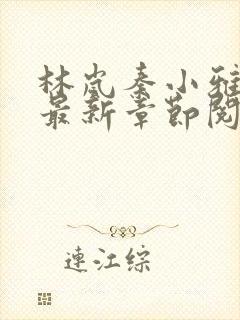 林岚秦小雅
最新章节阅
連江综